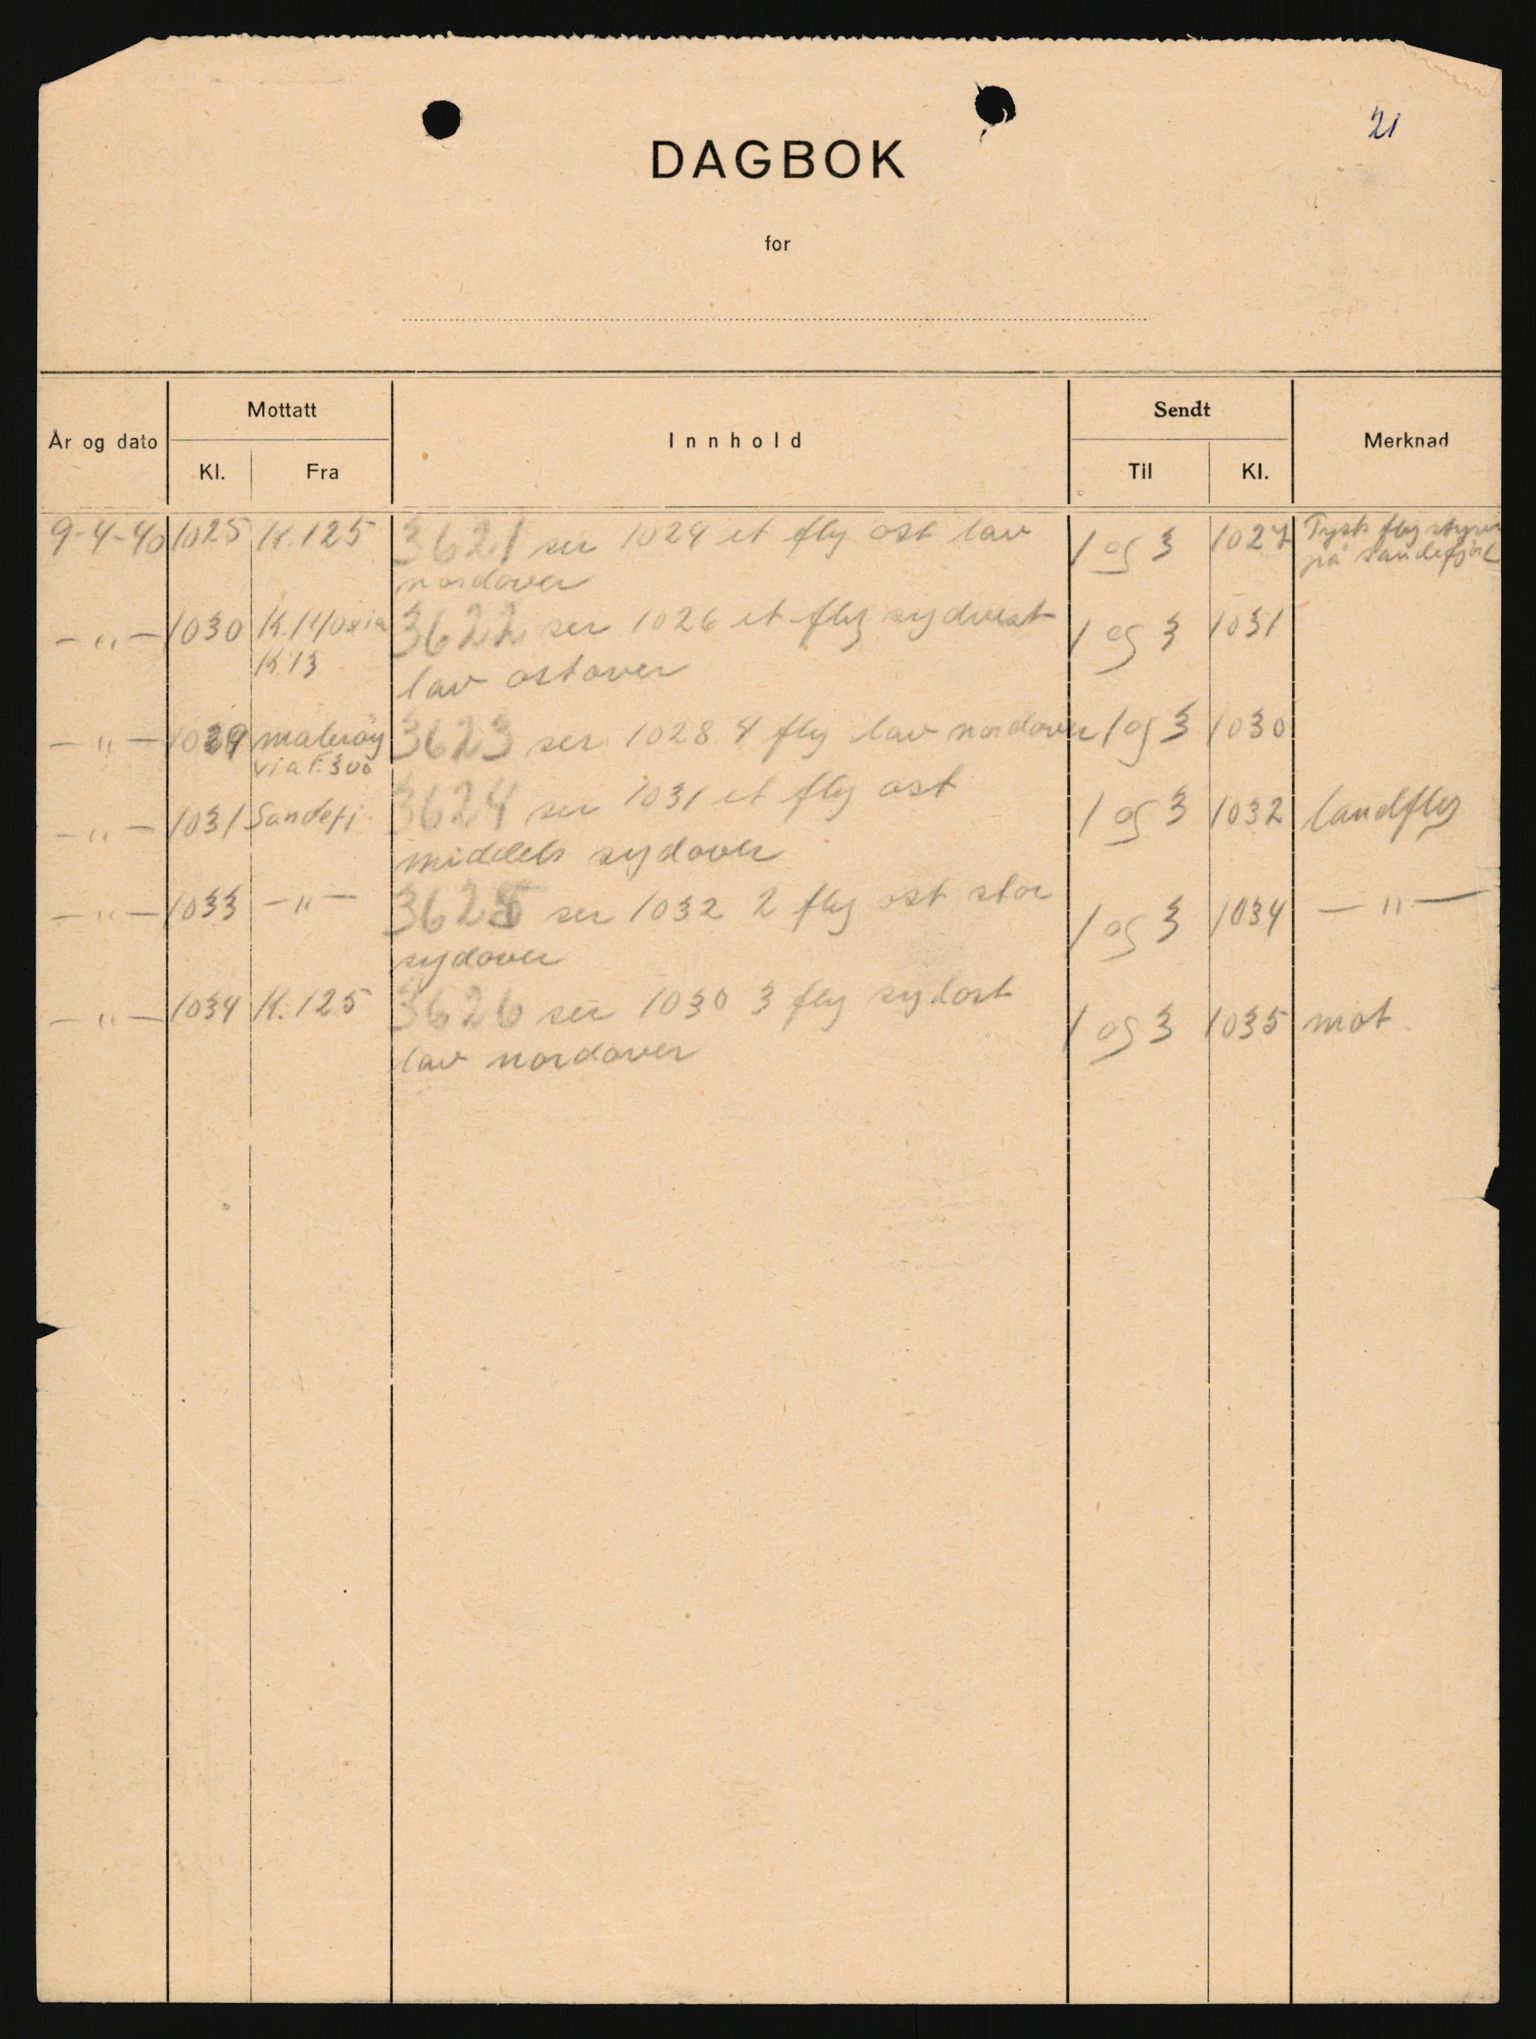 21
DAGBOK
for
År og dato Mottatt Innhold Sendt Merknad
Kl. Fra Til Kl.
9-4-40 1025 K.125 3621 ser 1024 et fly ost lav 1 og 3 1027 Tysk fly styrer
nordover på Sandefjord
— " — 1030 K.140 via 3622 ser 1026 et fly sydvest 1 og 3 1031
K.13 lav ostover
— " — 1029 3623 ser 1028 4 fly lav nordover 1 og 3 1030
via F.300
— " — 1031 Sandefj. 3624 ser 1031 et fly ost 1 og 3 1032 landfly
middels sydover
— " — 1033 — " — 3625 ser 1032 2 fly ost stor 1 og 3 1034 — " —
sydover
— " — 1034 K.125 3626 ser 1030 3 fly sydost 1 og 3 1035 mot
lav nordover